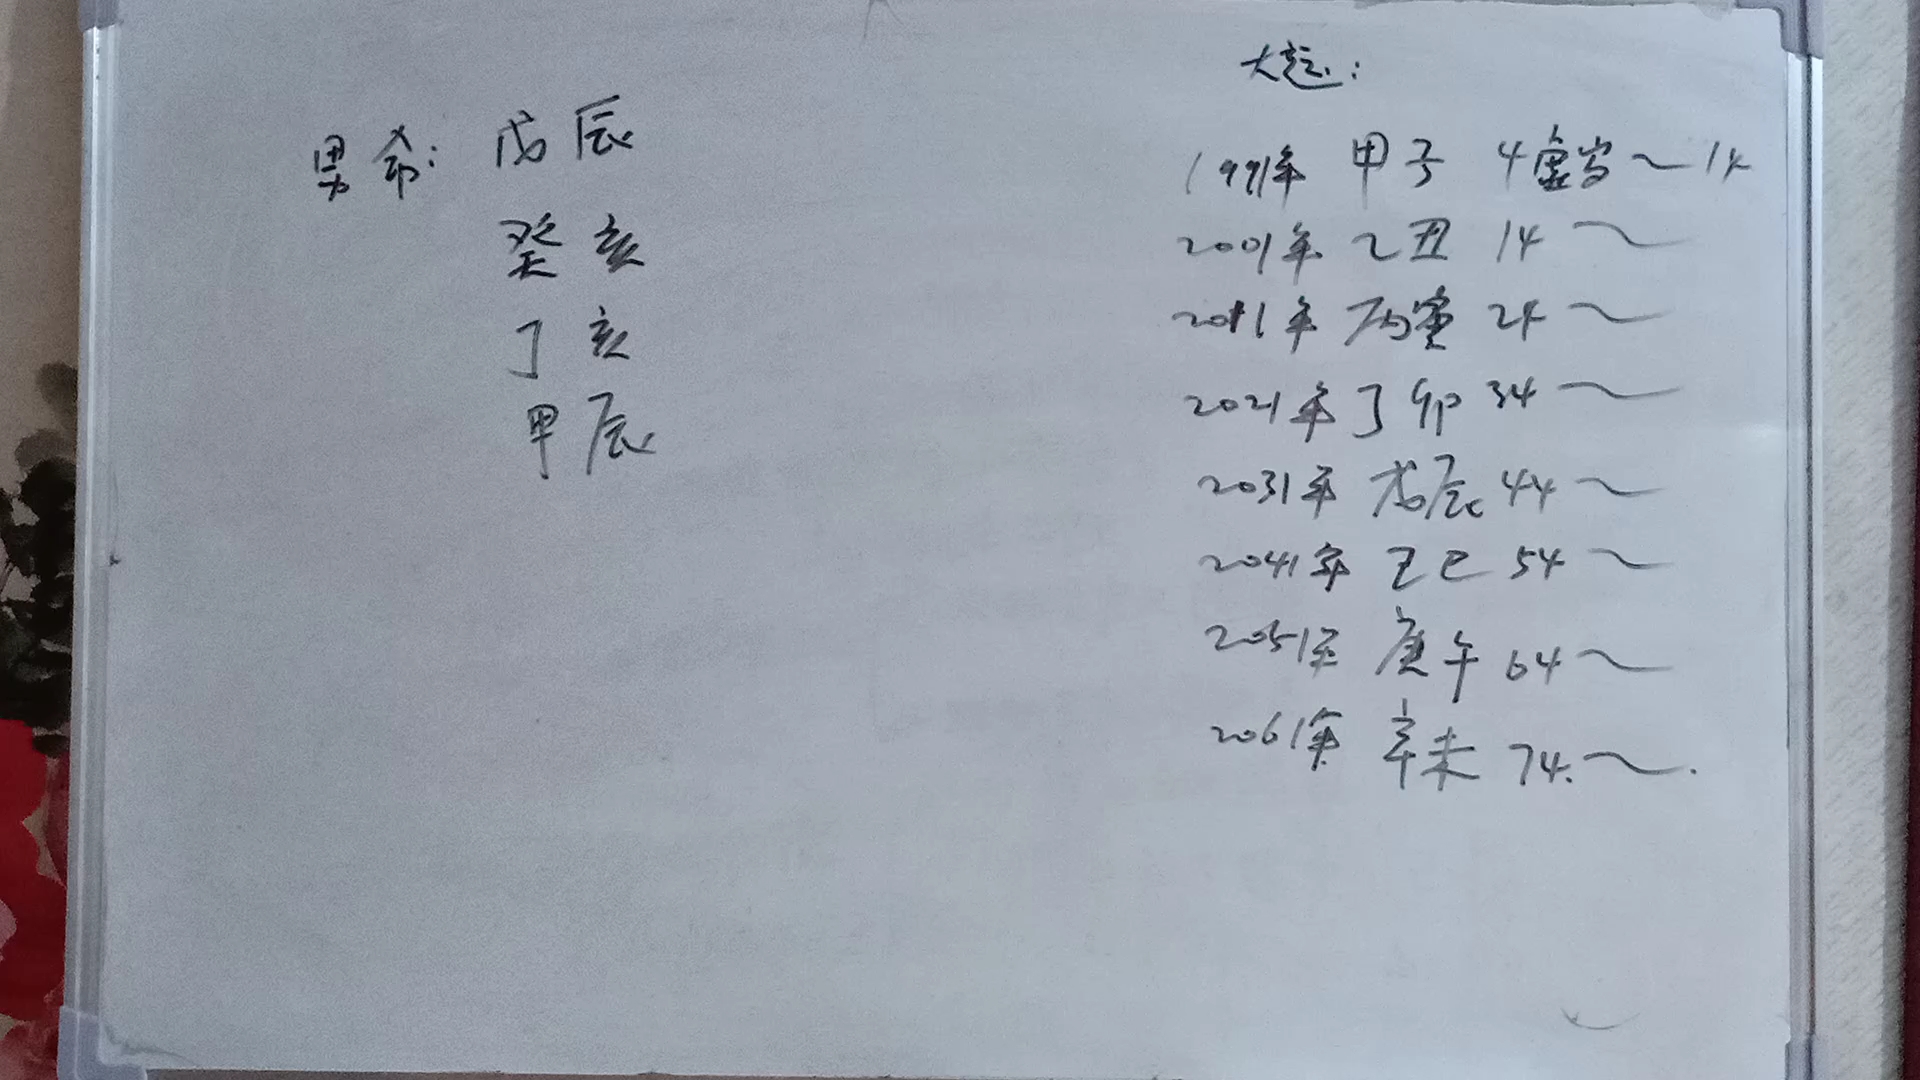 男命: 戊辰
癸亥
丁亥
甲辰
大运:
1991年 甲子 4虚岁～14
2001年 乙丑 14～
2011年 丙寅 24～
2021年 丁卯 34～
2031年 戊辰 44～
2041年 己巳 54～
2051年 庚午 64～
2061年 辛未 74.～.